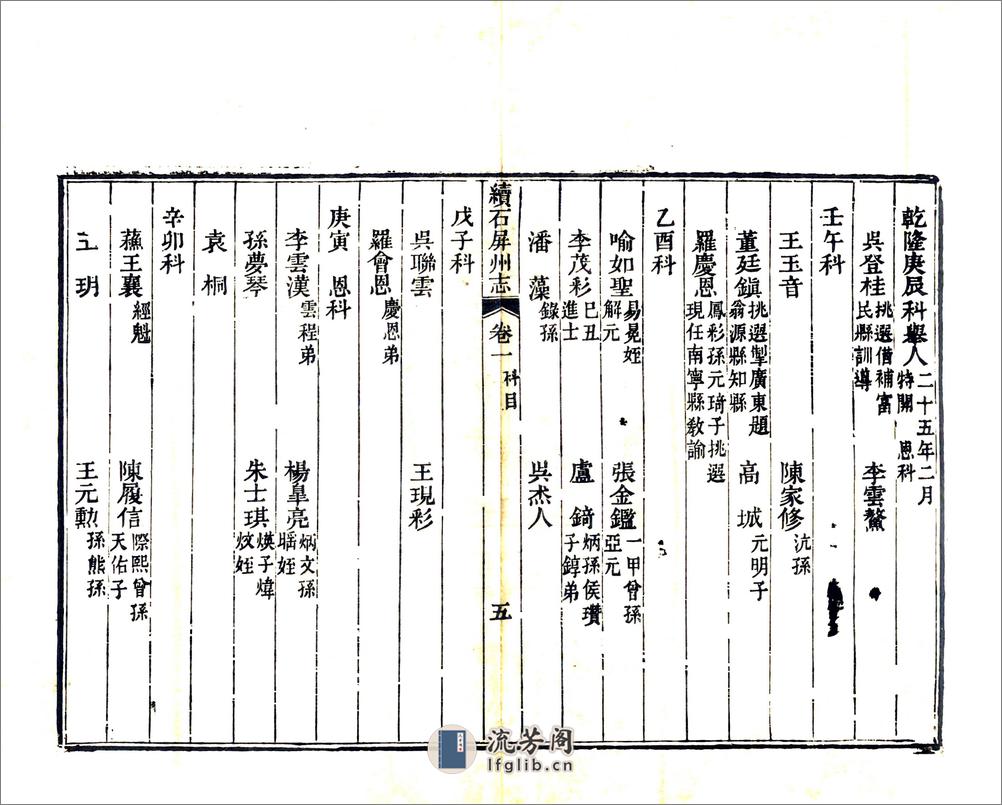 乾隆庚辰科舉人二十五年二月特開　恩科
吳登桂挑選借補富民縣訓導　李雲鰲
壬午科
王玉音　陳家修沆孫
董廷鎮挑選掣廣東題翁源縣知縣　高城元明子
羅慶恩鳳彩孫元琦子挑選現任南寧縣敎諭
乙酉科
喻如聖易晃姪解元　張金鑑一甲曾孫亞元
李茂彩己丑進士　盧錡炳孫侯瓚子錞弟
潘藻錄孫　吳杰人
續石屏州志　卷一　科目　五
戊子科
吳聯雲　王現彩
羅會恩慶恩弟
庚寅　恩科
李雲漢雲程弟　楊皐亮炳文孫姪
孫夢琴　朱士琪煐子煒炆姪
袁桐
辛卯科
蘇王襄經魁　陳履信際熙曾孫天佑子
王玥　王元勲孫熊孫
流芳阁
lfglib.cn